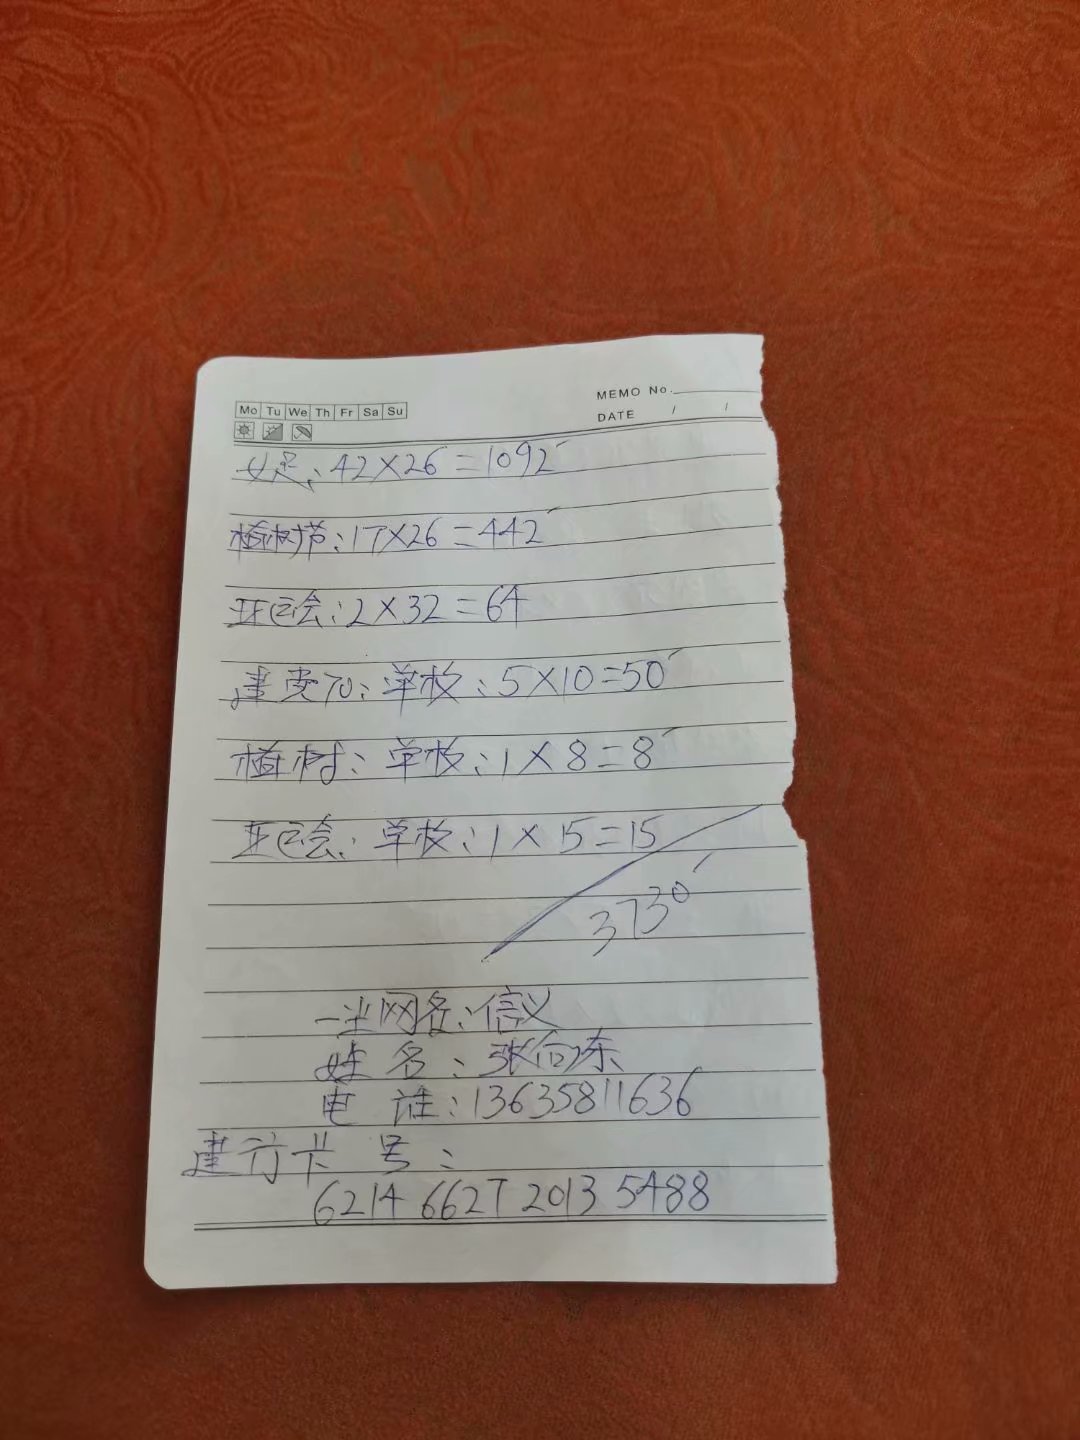 Mo Tu We Th Fr Sa Su
MEMO No.
DATE / /
女足：42×26=1092
植树节：17×26=442
亚运会：2×32=64
建党70：单枚：5×10=50
植树：单枚：1×8=8
亚运会：单枚：1×15=15
3730
一尘网名：信义
姓名：张向东
电话：13635811636
建行卡号：
6214 6627 2013 5488